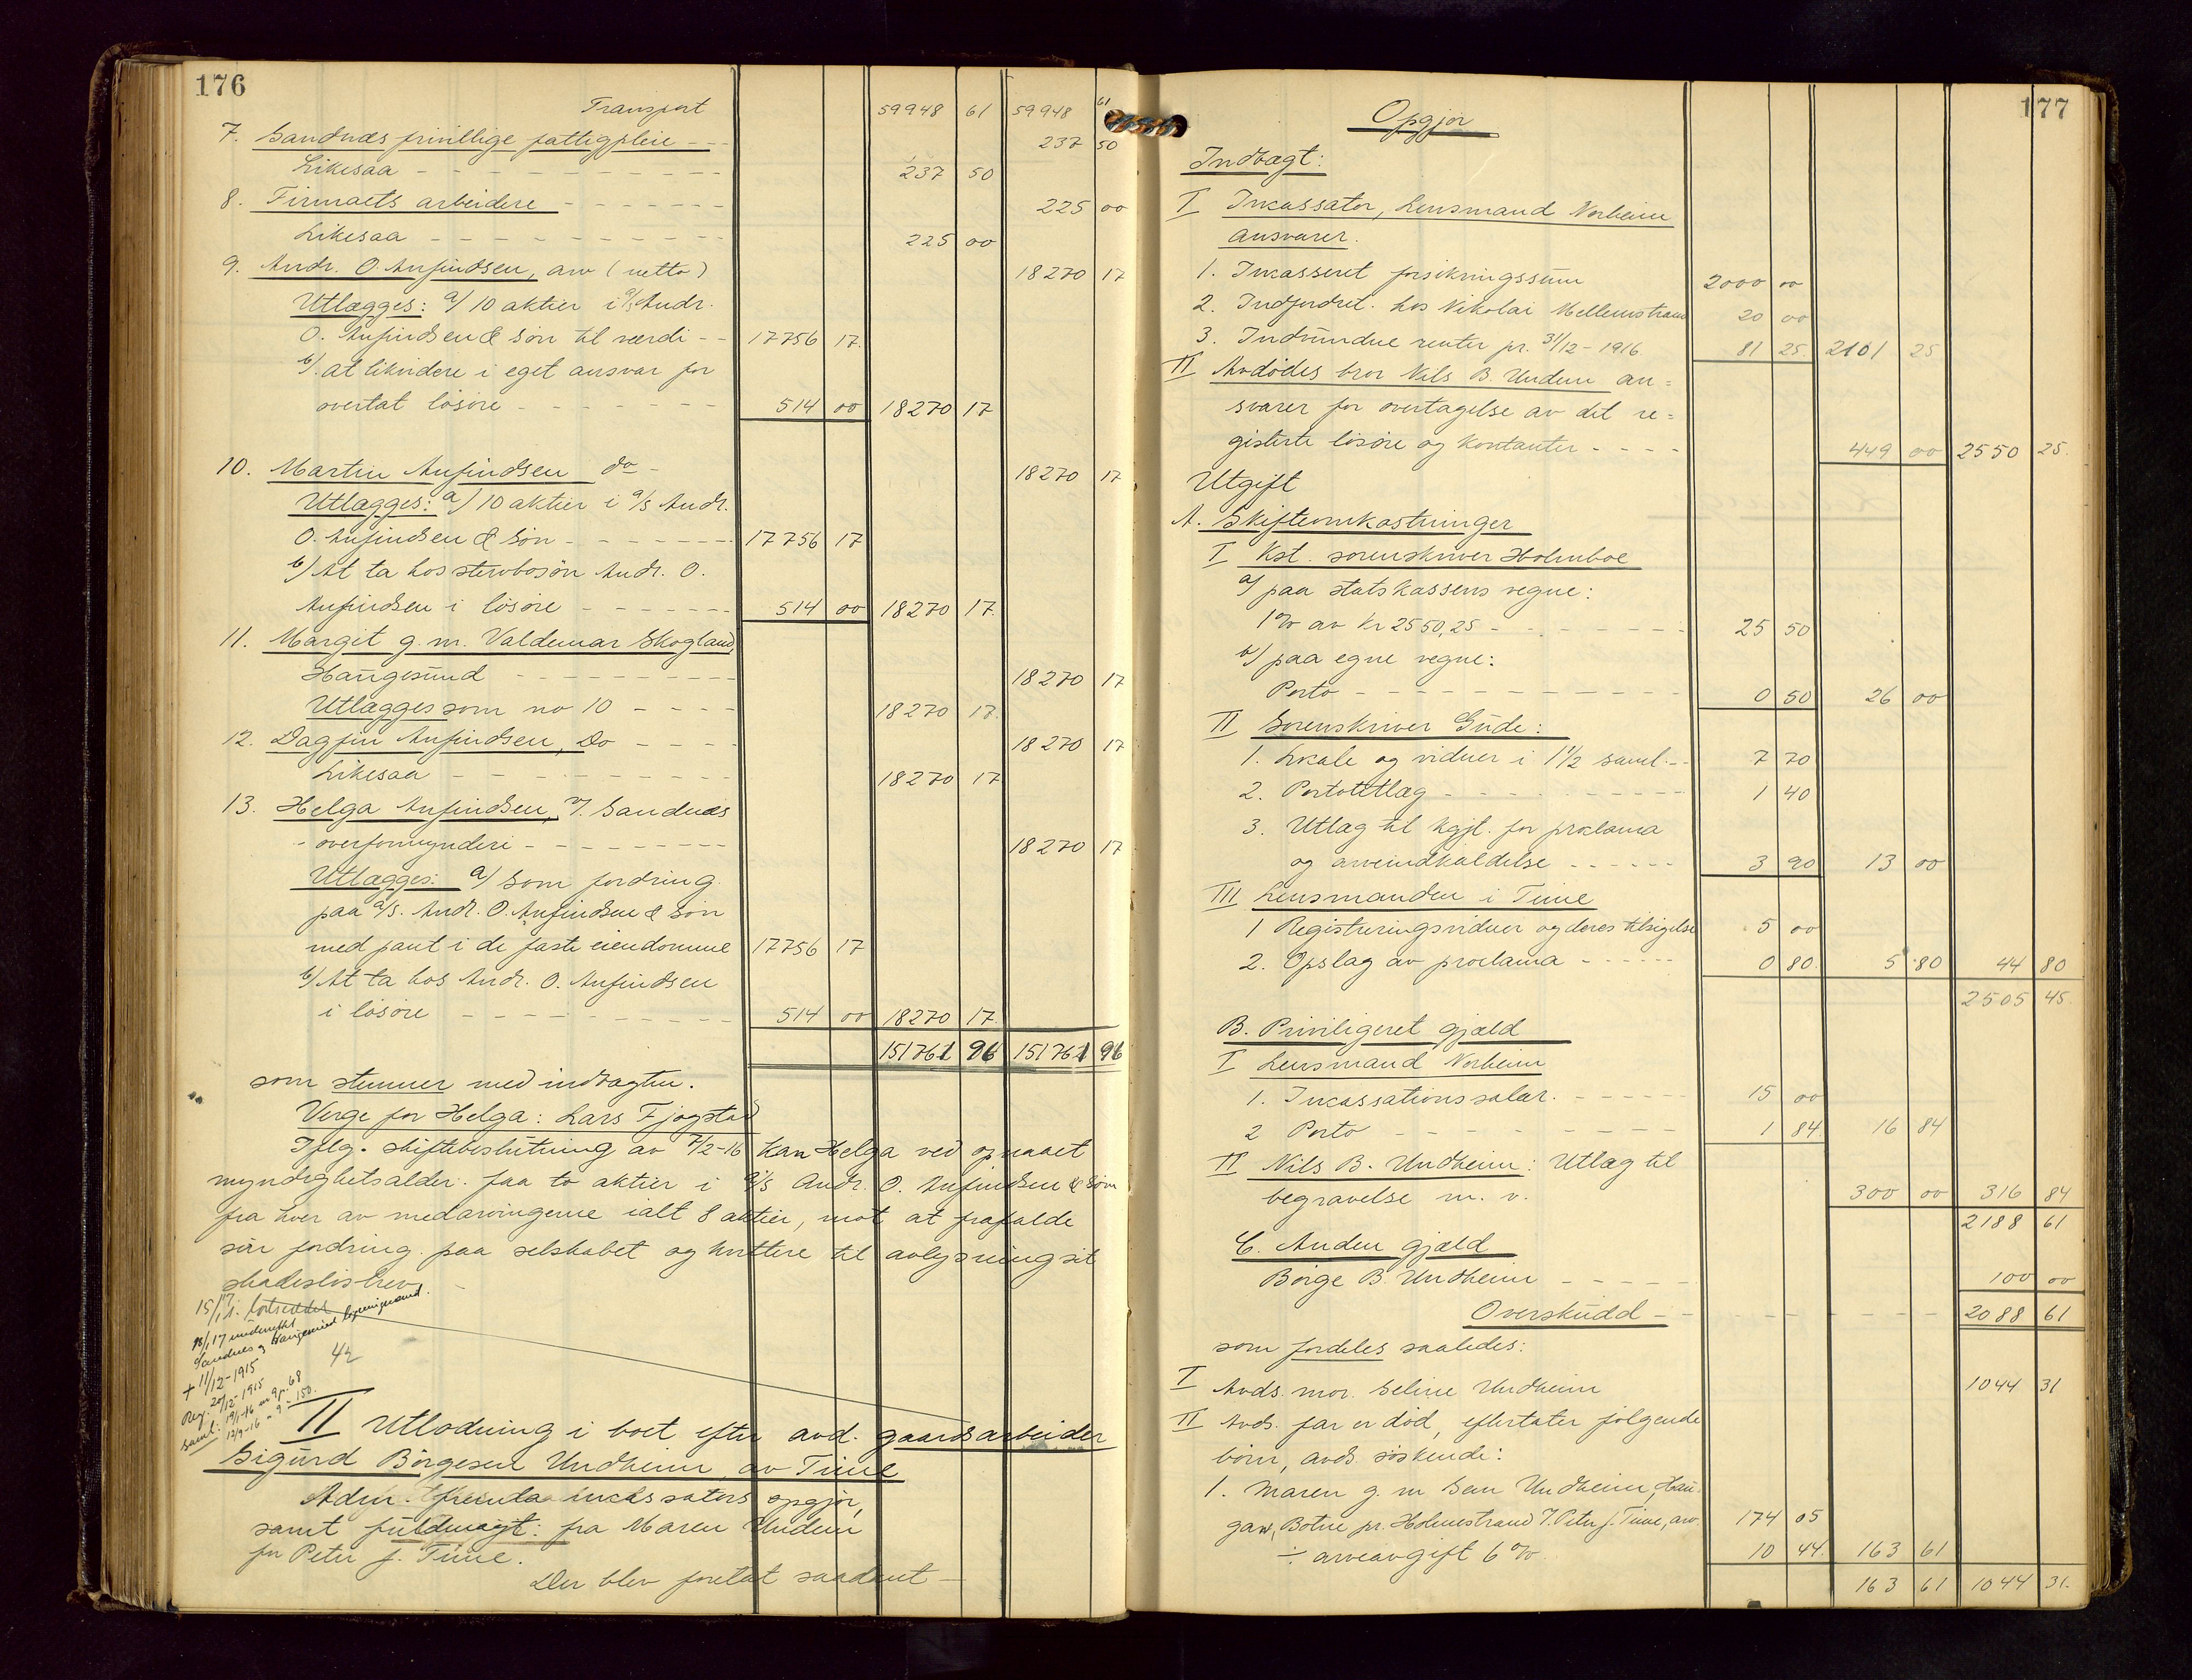 176
Transport 59948 61 59948 61
7. Sandnæs frivillige fattigpleie 237 50
Likesaa 237 50
8. Firmaets arbeidere 225 00
Likesaa 225 00
9. Andr. O. Anfindsen, arv (netto) 18270 17
Utlægges: a/ 10 aktier i a/s Andr.
O. Anfindsen & Søn til værdi 17756 17
b/. at likvidere i eget ansvar for
overtat løsøre 514 00 18270 17
10. Martin Anfindsen do 18270 17
Utlægges: a/ 10 aktier i a/s Andr.
O. Anfindsen & Søn 17756 17
b/ At ta hos stervbosøn Andr. O.
Anfindsen i løsøre 514 00 18270 17
11. Margit g. m. Valdemar Skogland,
Haugesund 18270 17
Utlægges som no 10 18270 17
12. Dagfin Anfindsen, Do 18270 17
Likesaa 18270 17
13. Helga Anfindsen, v/. Sandnæs
overformynderi 18270 17
Utlægges: a/ Som fordring
paa a/s. Andr. O. Anfindsen & Søn
med pant i de faste eiendomme 17756 17
b/ At ta hos Andr. O. Anfindsen
i løsøre 514 00 18270 17
151761 96 151761 96
som stemmer med indtægten.
Verge for Helga: Lars Fjogstad
Iflg. skiftebeslutning av 7/2-16 kan Helga ved opnaaet
myndighetsalder faa to aktier i a/s Andr. O. Anfindsen & Søn
fra hver av medarvingerne ialt 8 aktier, mot at frafalde
sin fordring paa selskabet og kvittere til avlysning sit
skadesløsbrev.
15/1 17
18/1 17 underrettet
Sandnes og Haugesund
+ 11/12-1915
Reg. 20/12-1915
Saml: 19/1-16 9 p. 68
12/9-16 - 9 - 150.
42
II Utlodning i boet efter avd. gaardsarbeider
Sigurd Børgesen Undheim av Time
Adm. fremla incassators opgjør,
samt fuldmagt: fra Maren Undem
for Peter J. Time.
Der blev foretat saadant
177
Opgjør
Indtægt:
I Incassator, Lensmand Norheim
ansvarer.
1. Incasseret forsikringssum 2000 00
2. Indfordret hos Nikolai Mellemstrand 20 00
3. Indvundne renter pr. 31/12-1916 81 25 2101 25
II Avdødes bror Nils B. Undem an=
svarer for overtagelse av det re=
gisterte løsøre og kontanter 449 00 2550 25
Utgift
A. Skifteomkostninger
I Kst. sorenskriver Holmboe
a/ paa statskassens vegne:
1% av Kr 2550,25 25 50
b/ paa egne vegne:
Porto 0 50 26 00
II Sorenskriver Gude:
1. Lokale og vidner i 1 1/2 saml. 7 70
2. Portoutlæg 1 40
3. Utlæg til kgjl. for proclama
og arveindkaldelse 3 90 13 00
III Lensmanden i Time
1 Registreringsvidner og deres tilsigelse 5 00
2. Opslag av proclama 0 80 5 80 44 80
2505 45
B. Priviligeret gjæld
I Lensmand Norheim
1. Incassationssalær. 15 00
2 Porto 1 84 16 84
II Nils B. Undheim: Utlæg til
begravelse m. v. 300 00 316 84
2188 61
C. Anden gjæld
Børge B. Undheim 100 00
Overskudd 2088 61
som fordeles saaledes:
I Avds. mor. Seline Undheim 1044 31
II Avds. far er død, eftertater følgende
børn, avds. søskende:
1. Maren g. m Sem Undheim, Hau-
gan, Botne pr. Holmestrand v. Peter J. Time, arv. 174 05
÷ arveavgift 6% 10 44 163 61
163 61 1044 31